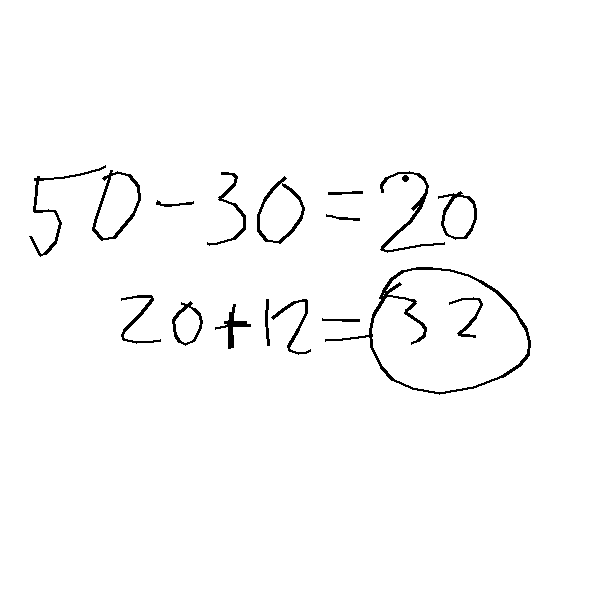 50-30=20
20+12=32